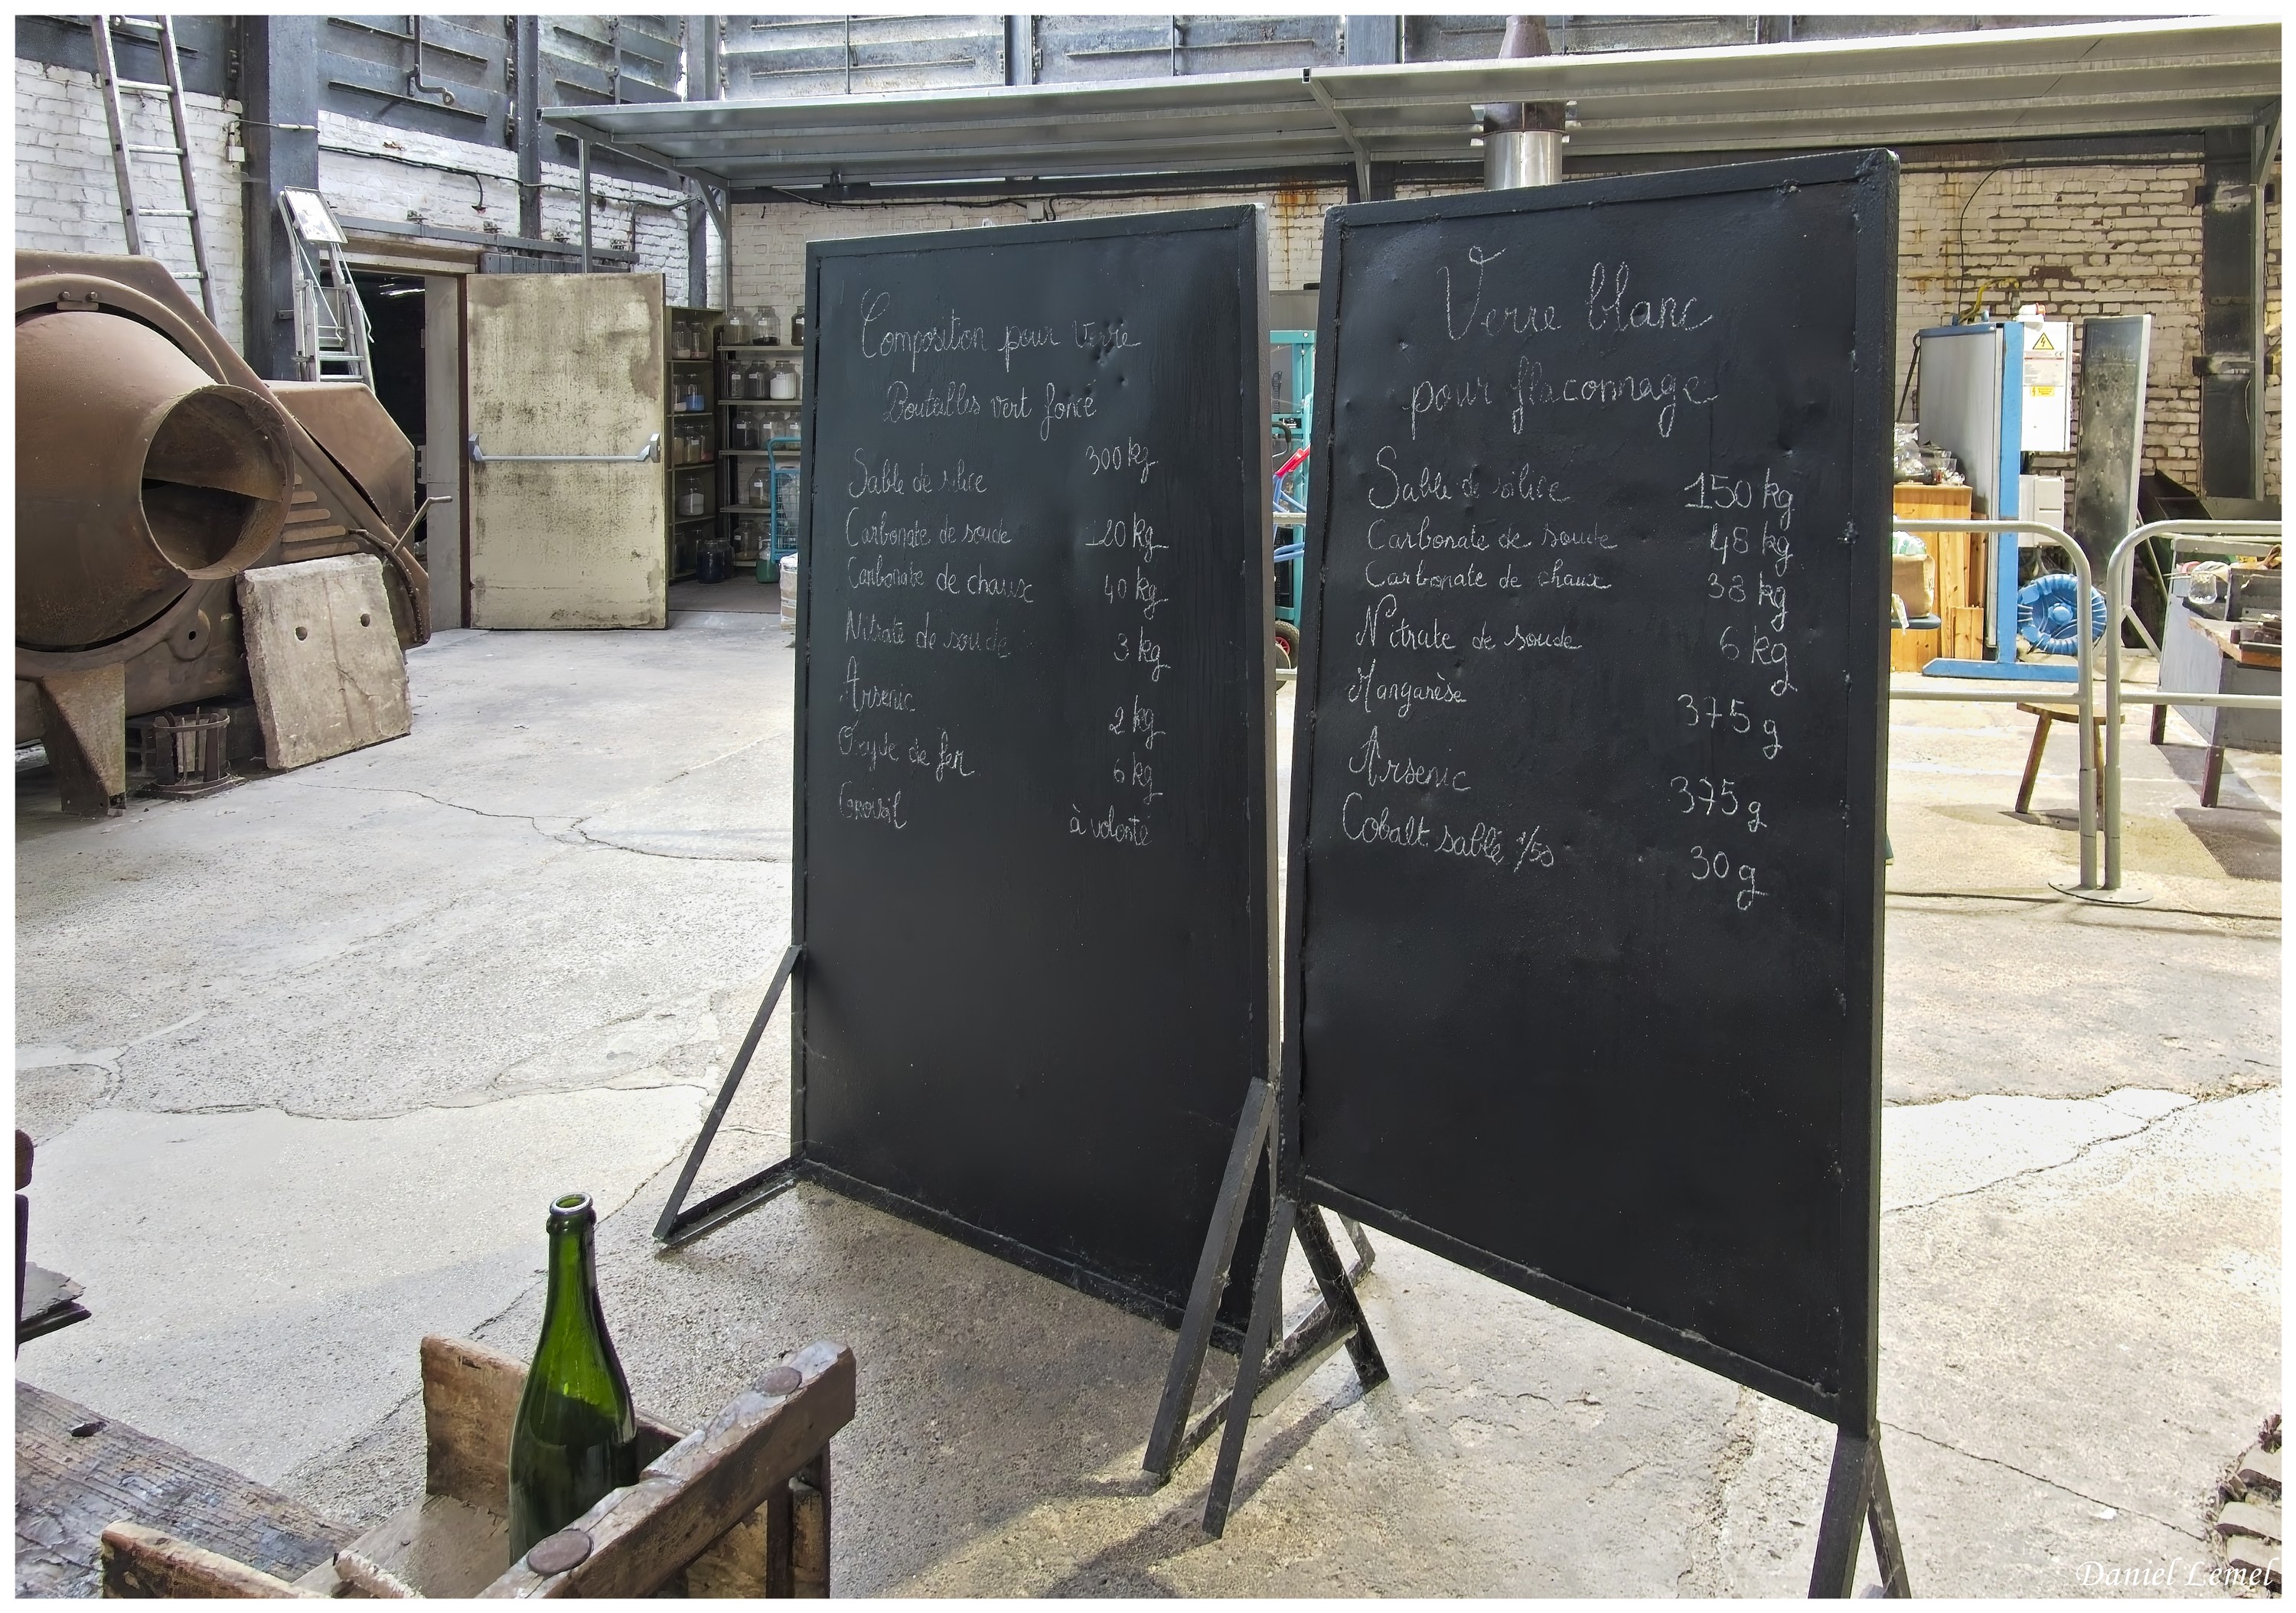 Composition pour verre
Bouteilles vert foncé
Sable de silice 300 kg
Carbonate de soude 120 kg
Carbonate de chaux 40 kg
Nitrate de soude 3 kg
Arsenic 2 kg
Oxyde de fer 6 kg
Groisil à volonté
Verre blanc
pour flaconnage
Sable de silice 150 kg
Carbonate de soude 48 kg
Carbonate de chaux 38 kg
Nitrate de soude 6 kg
Manganèse 375 g
Arsenic 375 g
Cobalt sablé 1/50 30 g
Daniel Lemel